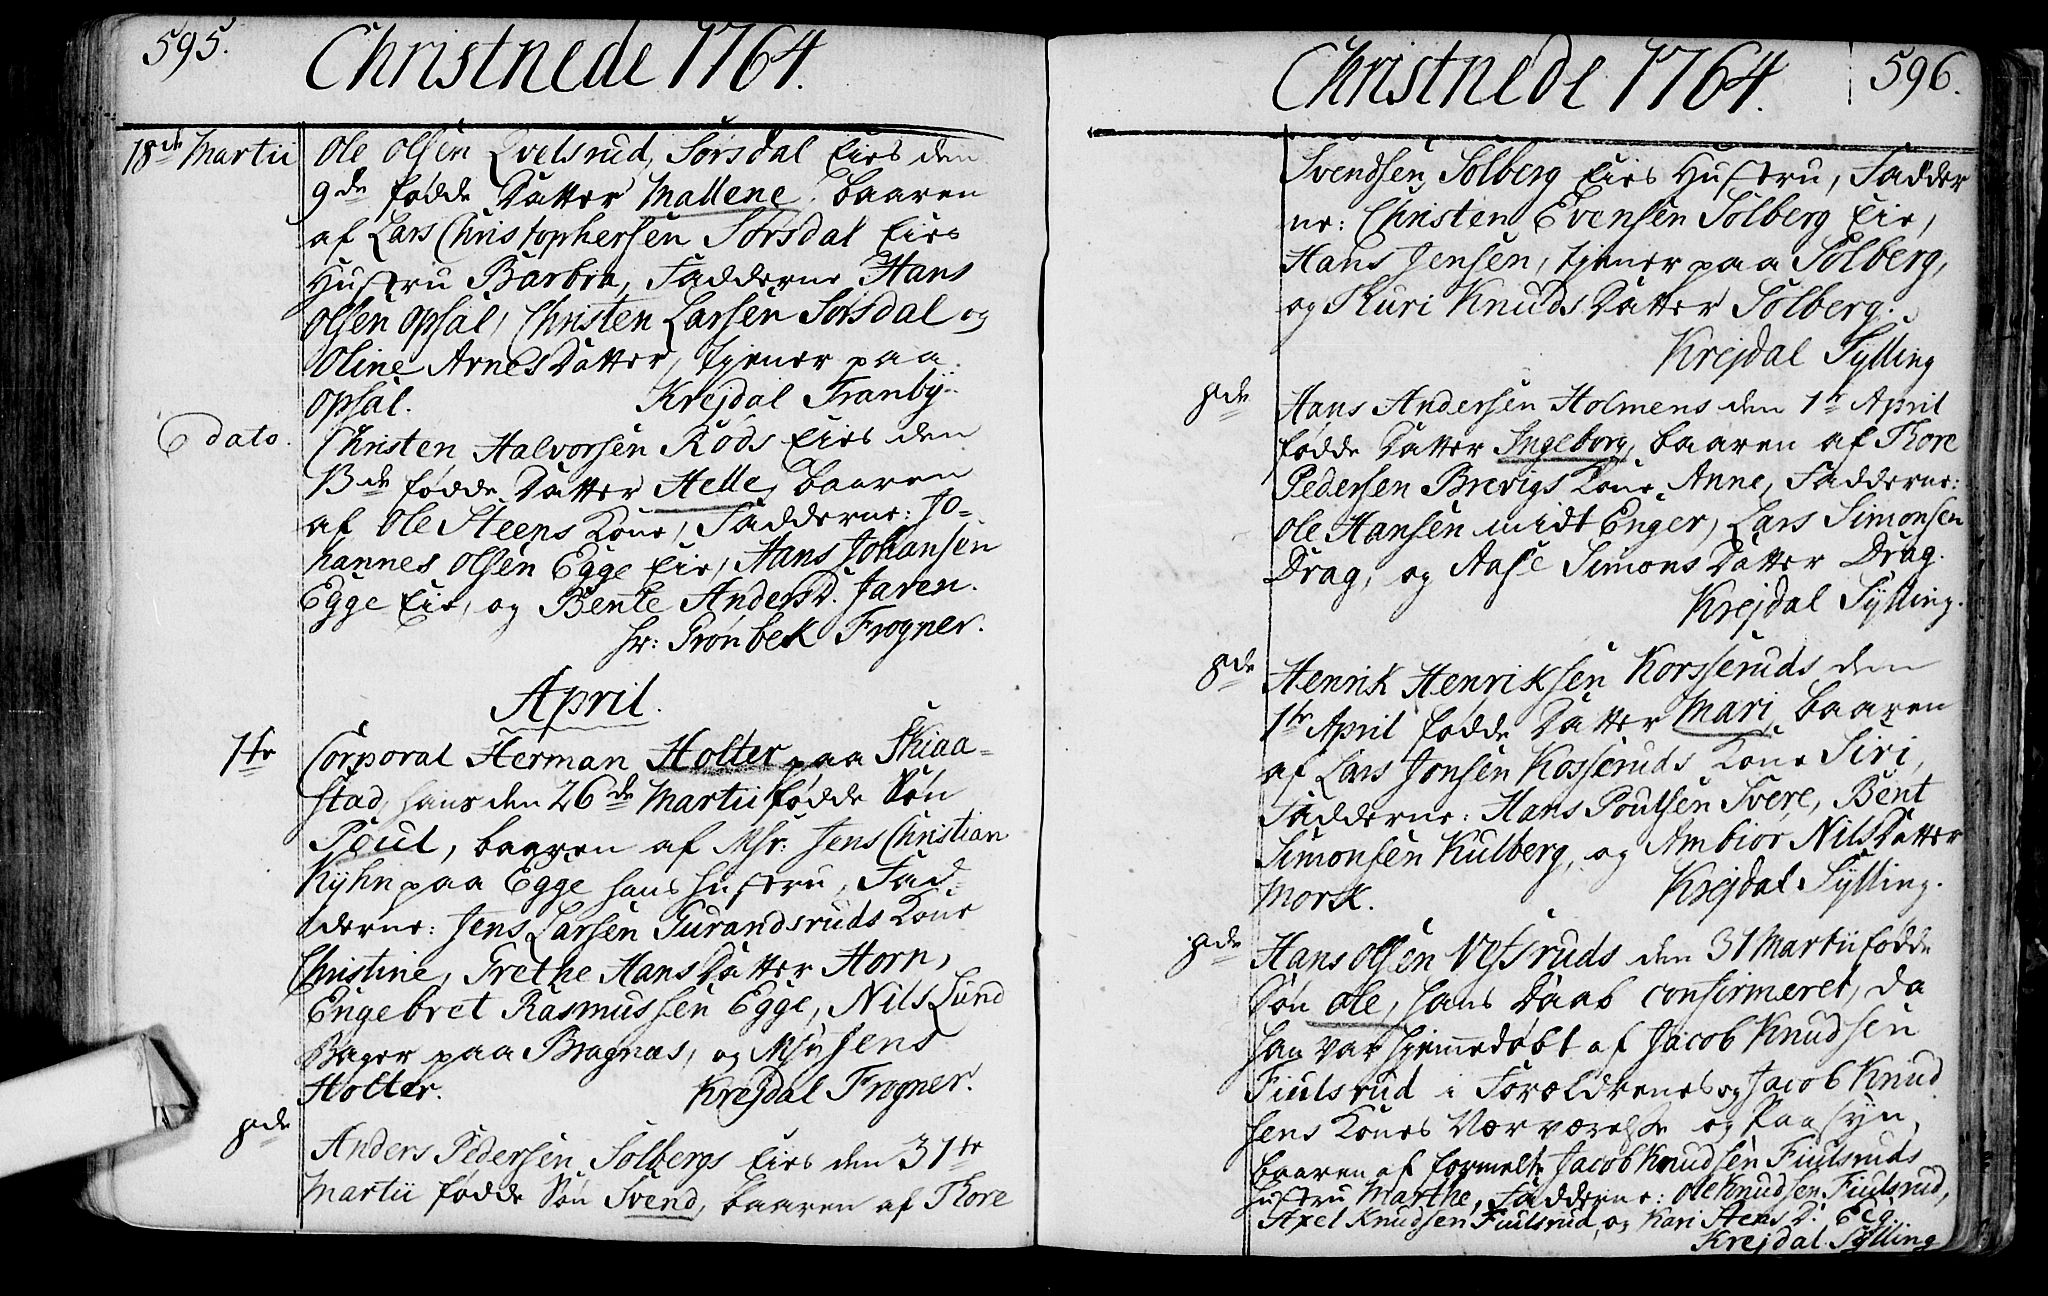 595.
Christnede 1764.
18de Martii Ole Olsen Qvelsrud, Sørsdal Eies den
9de fødde Datter Mallene, baaren
af Lars Christophersen Sørsdal Eies
Hustru Barbra, Fadderne Hans
Olsen Opsal, Christen Larsen Sørsdal og
Oline Arnes Datter, tjener paa
Opsal. Krejdal Tranby.
E dato. Christen Halvorsen Røds Eies den
13de fødde Datter Helle, baaren
af Ole Steens Kone, Fadderne: Jo-
hannes Olsen Egge Eie, Hans Johansen
Egge Eie, og Bente Anders D. Jaren.
Hr: Grønbek Frogner.
April.
1te Corporal Herman Holter paa Skiaa-
stad, hans den 26de Martii fødde Søn
Poul, baaren af Msr: Jens Christian
Kyhn paa Egge hans Hustru, Fad-
derne: Jens Larsen Gurandsruds Kone
Christine, Grethe Hans Datter Horn,
Engebret Rasmussen Egge, Nils Lund
Bager paa Bragnæs, og Msr Jens
Holter. Krejdal Frogner.
8de Anders Pedersen Solbergs Eies den 31te
Martii fødde Søn Svend, baaren af Thore
Christnede 1764. 596.
Svendsen Solberg Eies Hustru, Fadder
ne: Christen Evensen Solberg Eie,
Hans Jensen, tjener paa Solberg,
og Thuri Knuds Datter Solberg.
Krejdal Sylling
8de Hans Andersen Holmens den 1te April
fødde Datter Ingeborg, baaren af Thore
Pedersen Brevigs Kone Anne, Fadderne:
Ole Hansen midt Enger, Lars Simonsen
Drag, og Aase Simons Datter Drag.
Krejdal Sylling.
8de Henrik Henriksen Korsseruds den
1te April fødde Datter Mari, baaren
af Lars Jonsen Kosseruds Kone Siri,
Fadderne: Hans Poulsen Svere, Bent
Simonsen Kulberg, og Ambiør Nils Datter
Morsk. Krejdal Sylling.
8de Hans Olsen Vefsruds den 31 Martii fødde
Søn Ole, hans Daab confirmeret, da
han var hjemmedøbt af Jacob Knudsen
Fiulsrud i Forældrenes og Jacob Knud
sens Kones Nærværelse og Paasyn,
baaren af formelte Jacob Knudsen Fiulsruds
Hustru Marthe, Fadderne: Ole Knudsen Fiulsrud,
Axel Knudsen Fiulsrud, og Kari Stens D.
Krejdal. Sylling